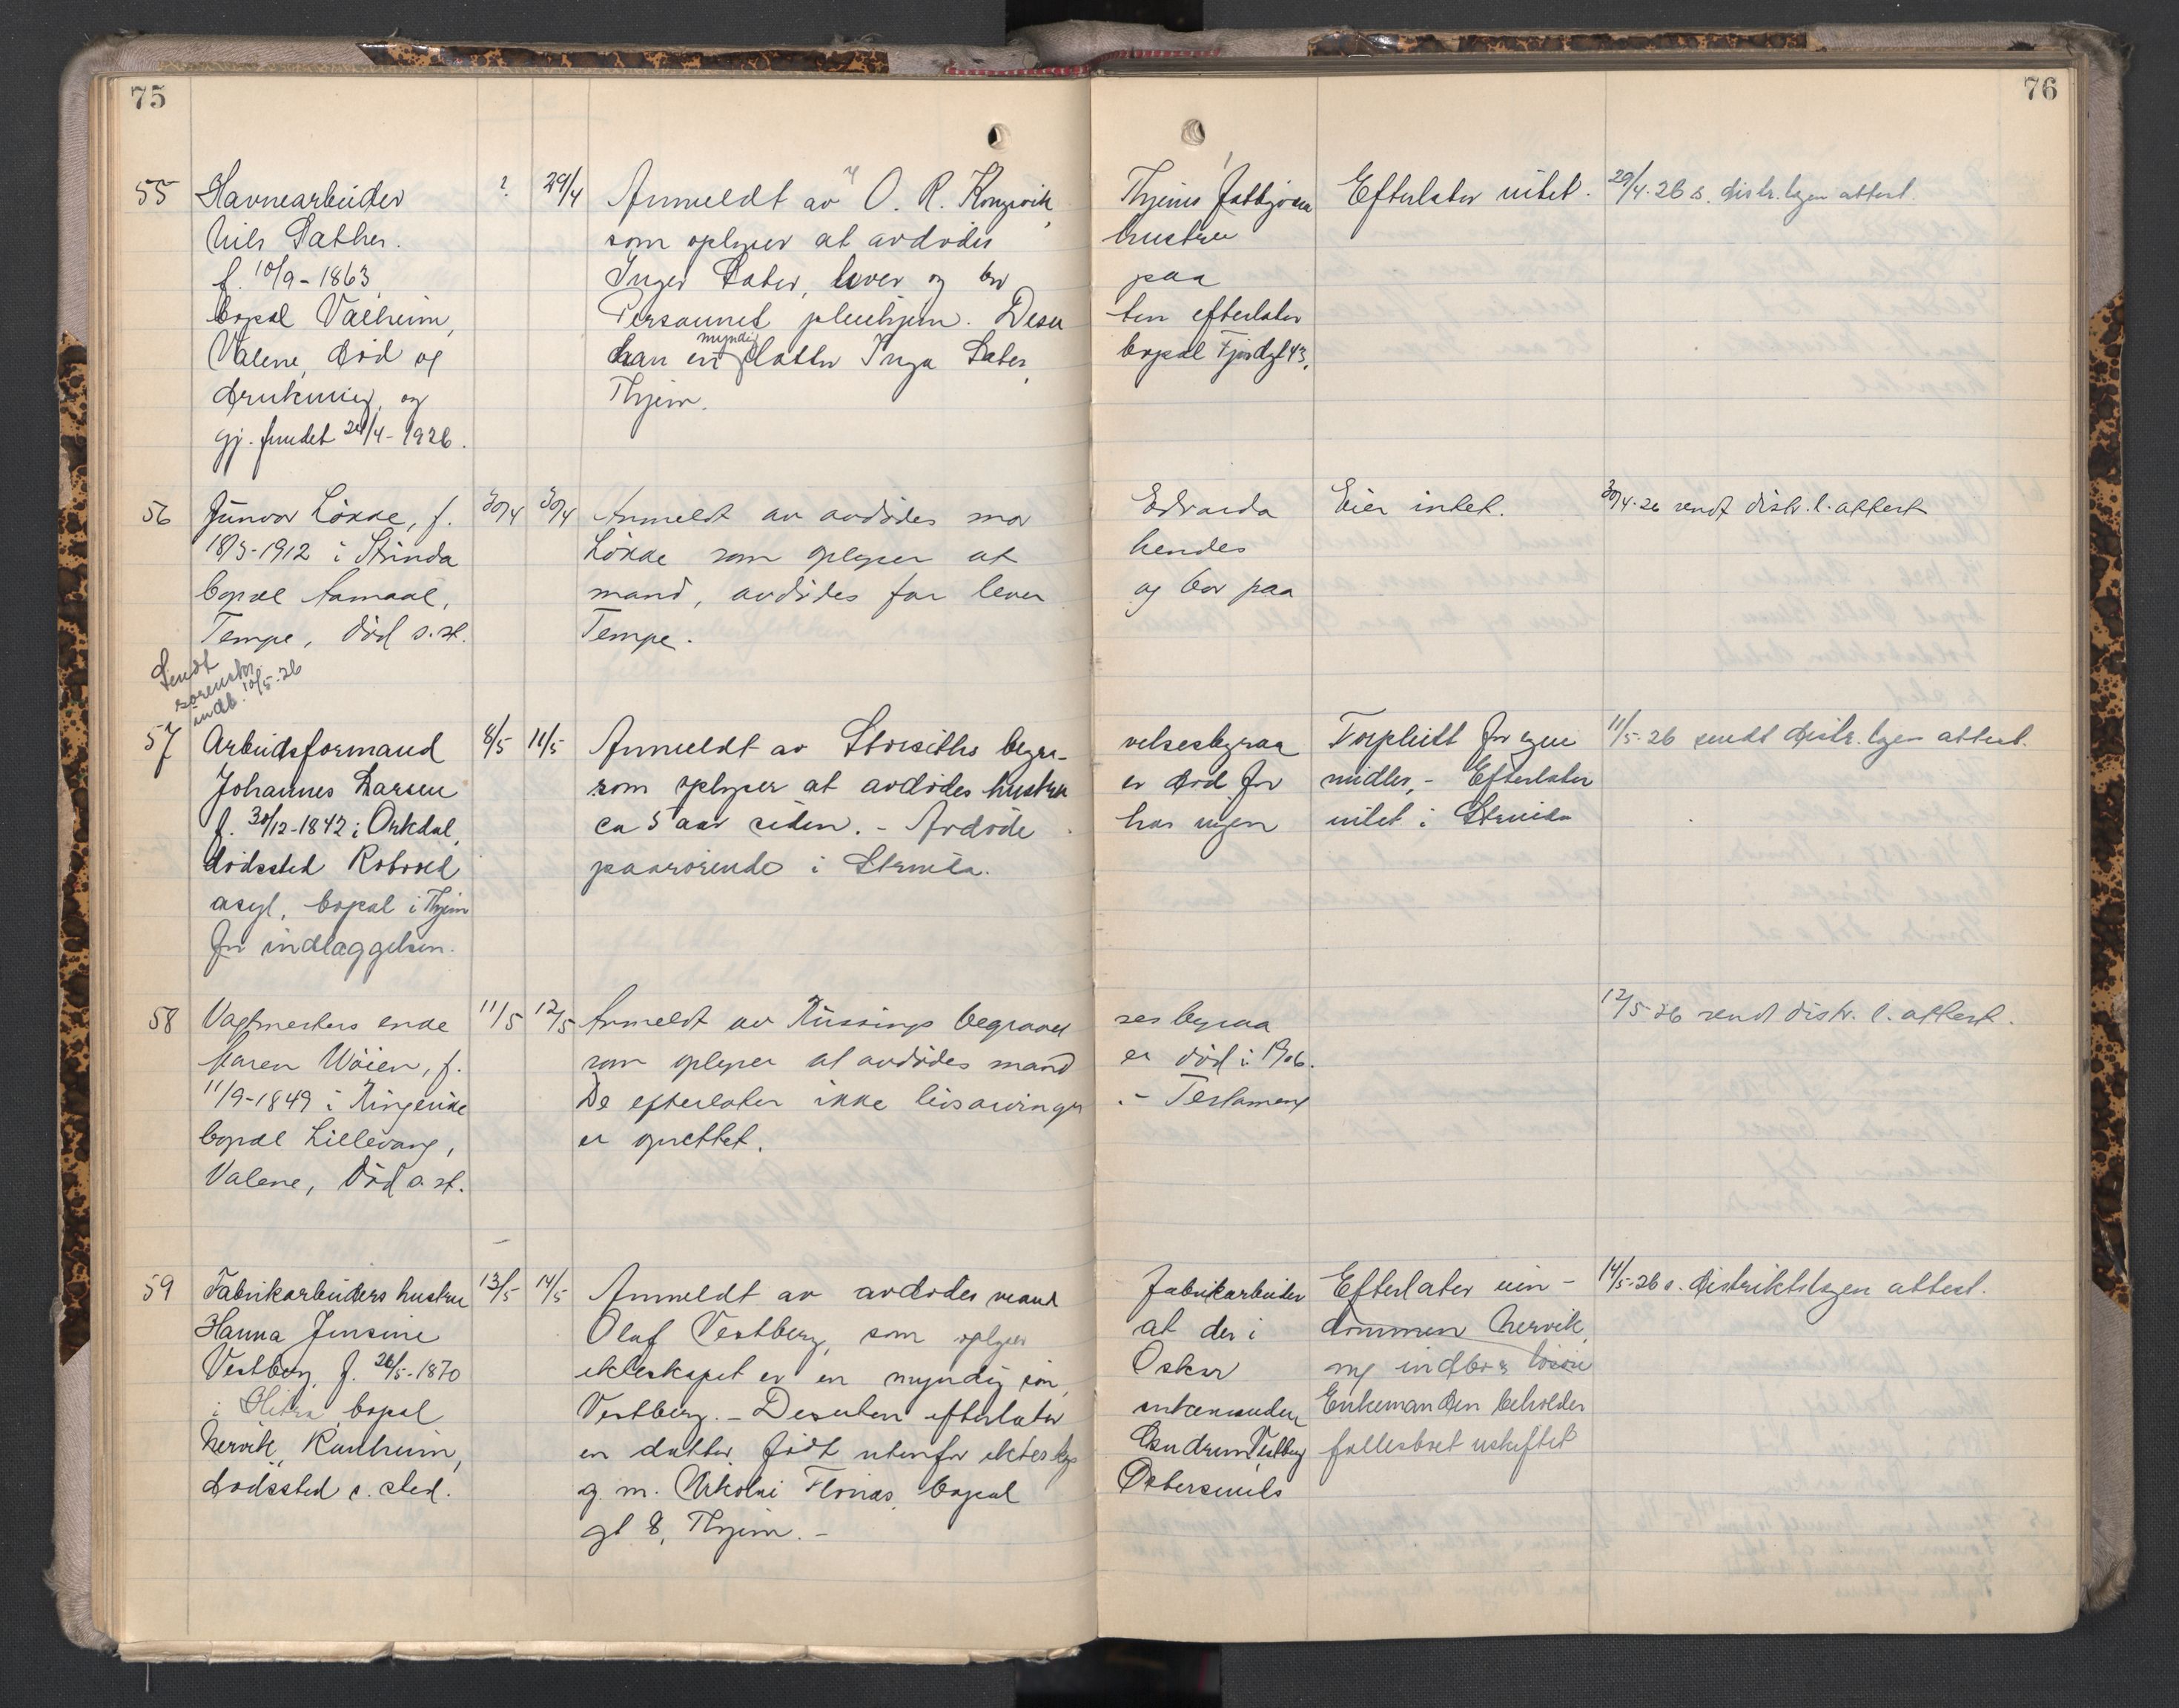 75
76
55 Havnearbeider ? 29/4 Anmeldt av O. R. Kongsvik, Thjems Fattigvæsen Efterlater intet. 29/4-26 s. distr.lægen attest.
Nils Sæther. som oplyser at avdødes hustru
f. 10/9-1863, Inger Sæter, lever og bor paa
bopæl Valheim, pleiehjem. Desu ten efterlater
Valene, død og han en myndig datter Inga Sæter, bopæl Fjordgt 43,
drukning, og Thjem.
gj. fundet 24/4-1926.
56 Gunvor Løkke, f. 30/4 30/4 Anmeldt av avdødes mor Edvarda Eier intet. 30/4-26 sendt distr.l. attest
18/3-1912 i Strinda Løkke som oplyser at hendes
bopæl mand, avdødes far lever og bor paa
Tempe, død s. st. Tempe.
Sendt
sorenskr.
indb. 10/5-26
57 Arbeidsformand 8/5 11/5 Anmeldt av Storsæths begra- velsesbyraa Forpleiet for egne 11/5-26 sendt distr.lægen attest.
Johannes Larsen som oplyser at avdødes hustru er død for midler, - Efterlater
f. 30/12-1842 i Orkdal, ca 5 aar siden. - Avdøde har ingen intet i Strinda
dødssted Rotvoll paarørende i Strinda.
asyl, bopæl i Thjem
før indlæggelsen.
58 Vagtmesters enke 11/5 12/5 Anmeldt av Russings begravel ses byraa 12/5-26 sendt distr. l. attest.
Karen Wåien, f. som oplyser at avdødes mand er død i 1906.
11/9-1849 i Ringerike De efterlater ikke livsarvinger .- Testament
bopæl Lillevang, er oprettet.
Valene, død s. st.
59 Fabrikarbeiders hustru 13/5 14/5 Anmeldt av avdødes mand Fabrikarbeider Efterlater eien- 14/5-26 s. distriktslægen attest.
Hanna Jensine Oluf Vestberg, som oplyser at der i dommen Nervik,
Vestberg, f. 26/5-1870 ekteskapet er en myndig søn, Oskar og indbo & løsøre
i Hitra, bopæl Vestberg. - Desuten efterlater enkemanden Enkemanden beholder
Nervik, Ranheim, en datter, født utenfor ekteskap Gudrun Vestberg fællesboet uskiftet
dødssted s. sted. g. m. Nikolai Flønæs, bopæl
gt 8, Thjem. -